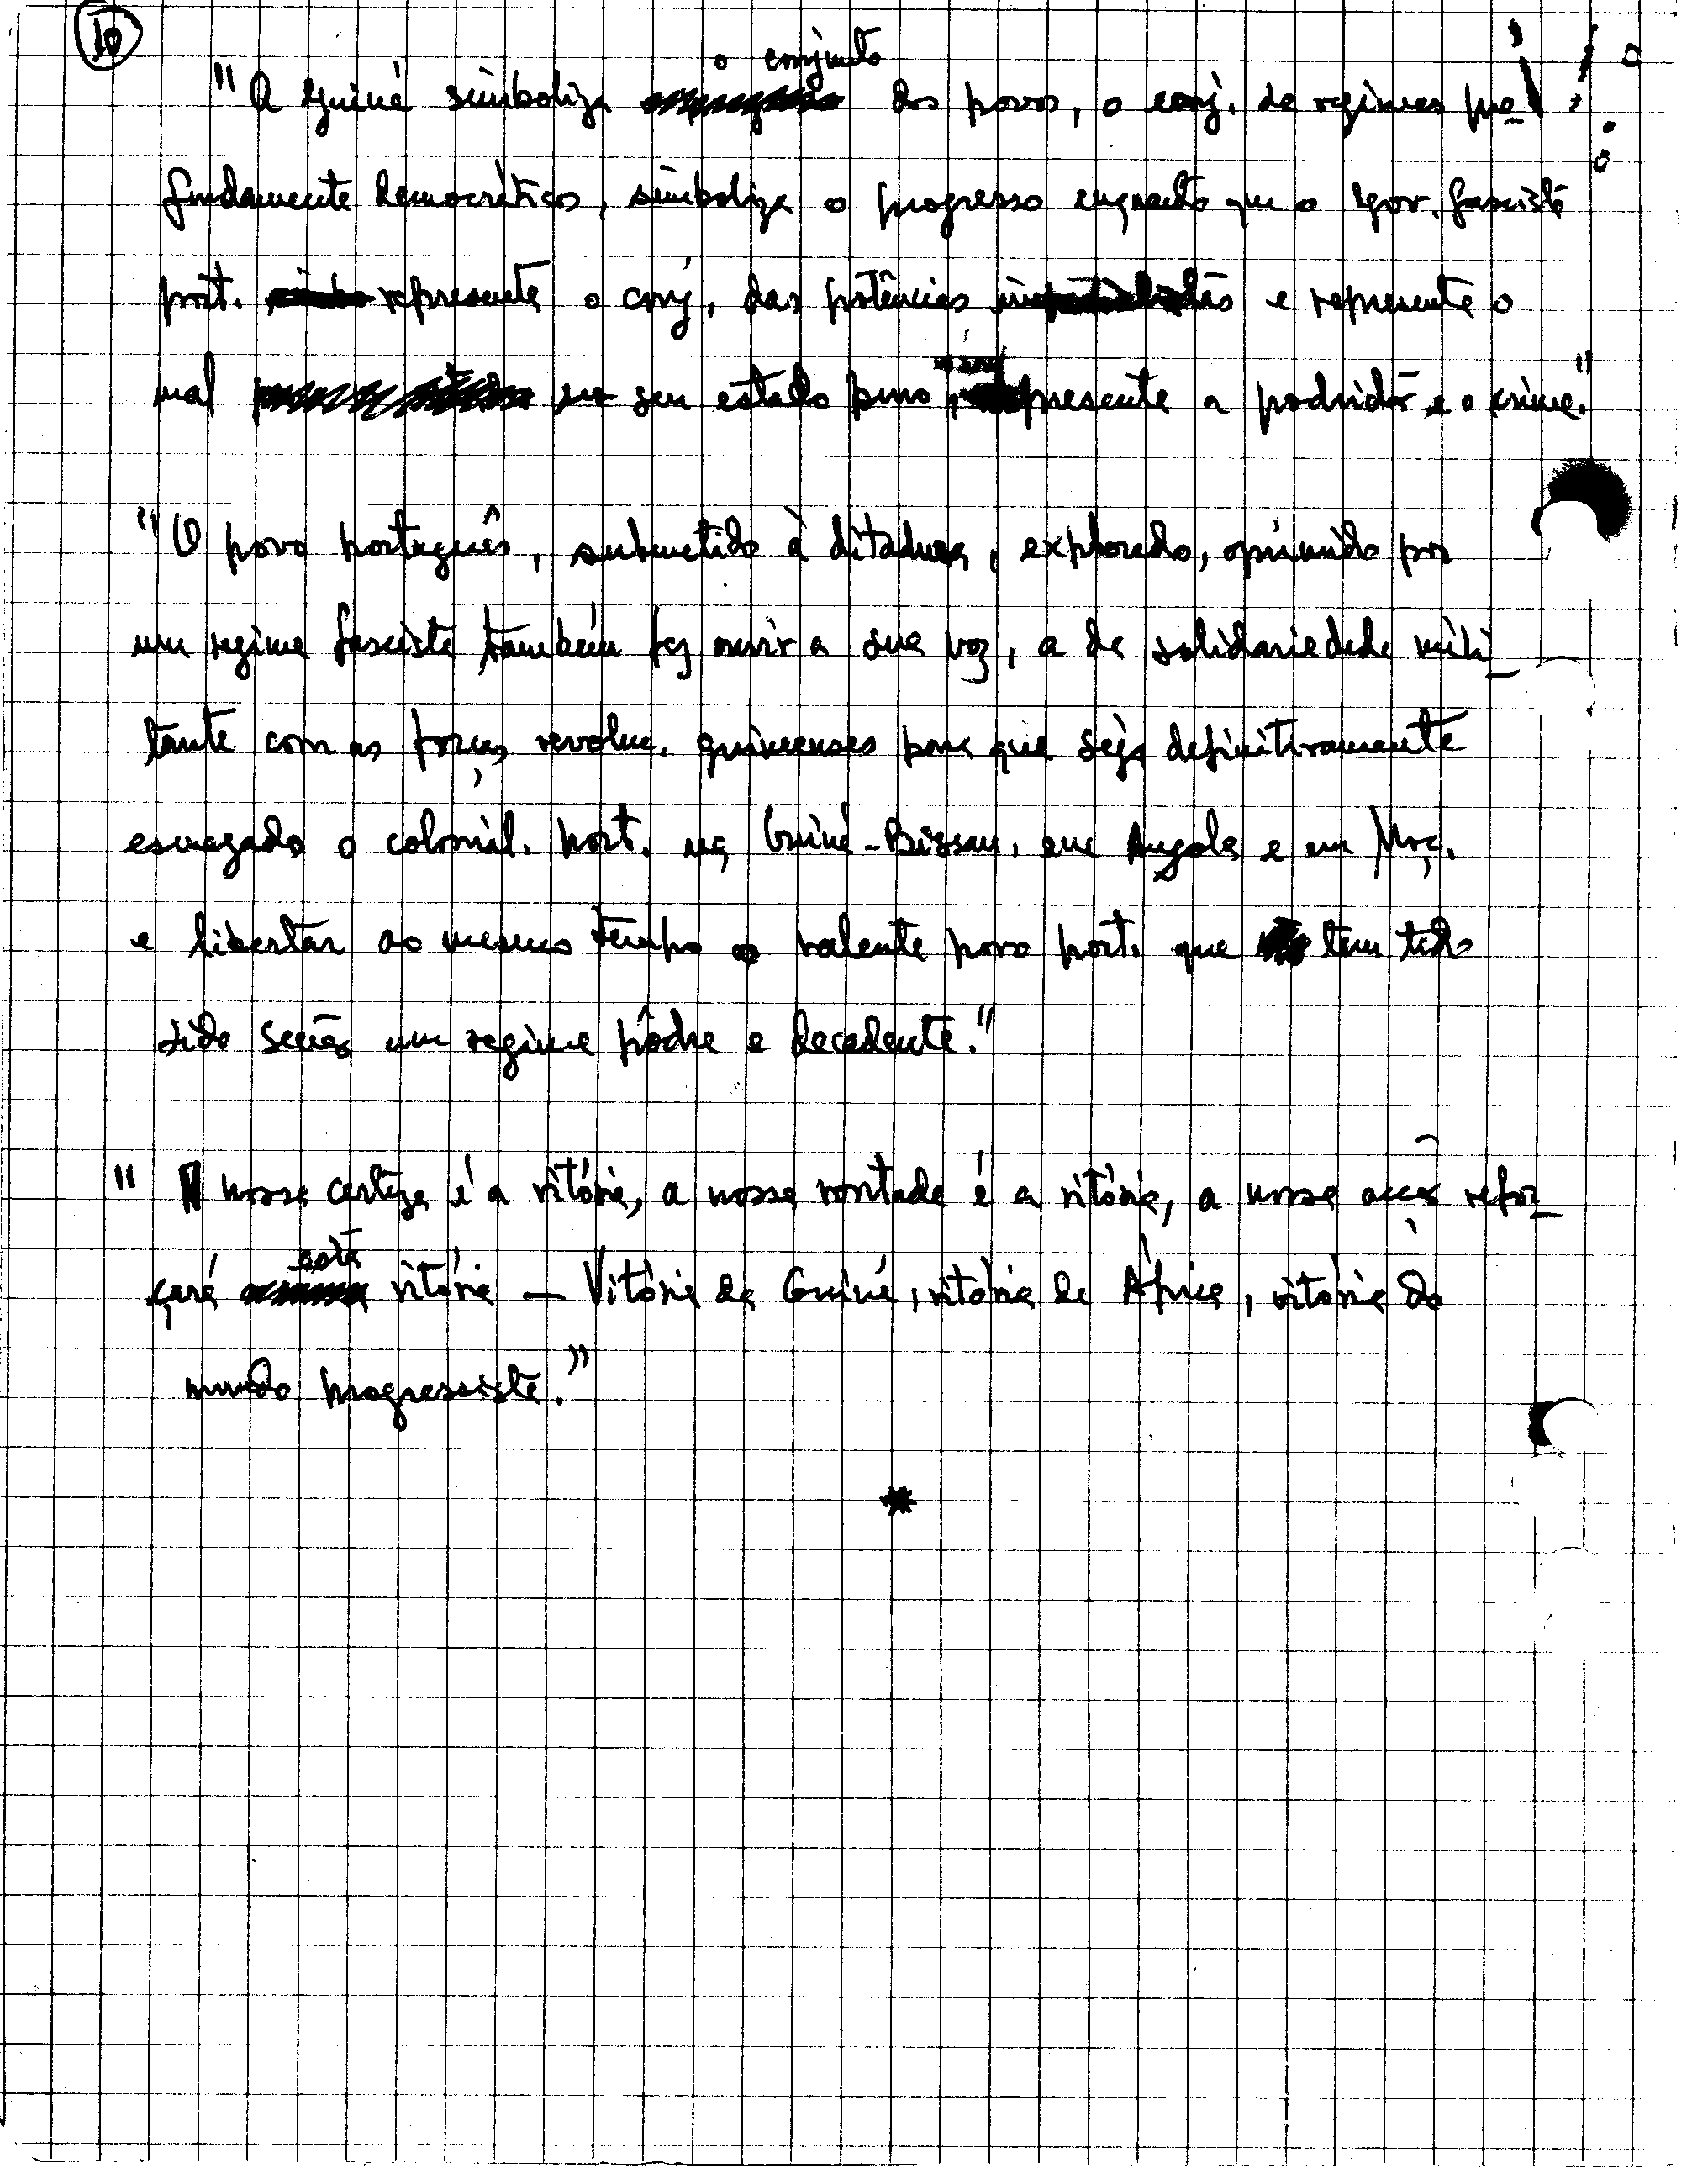 10
o conjunto
"A Guiné simboliza dos povos, o conj. de regimes pro-
fundamente democráticos, simboliza o progresso enquanto que o gov. fascista
port. representa o conj. das potências imperialistas e representa o
mal no seu estado puro, representa a podridão e o crime."
"O povo português, submetido à ditadura, explorado, oprimido por
um regime fascista também fez ouvir a sua voz, a da solidariedade mili-
tante com as forças revoluc. guineenses para que seja definitivamente
esmagado o colonial. port. na Guiné-Bissau, em Angola e em Moç.
e libertar ao mesmo tempo o valente povo port. que tem tido
sido senão um regime pôdre e decadente."
"A nossa certeza é a vitória, a nossa vontade é a vitória, a nossa acção refor-
esta
çará vitória — Vitória da Guiné, vitória de África, vitória do
mundo progressista."